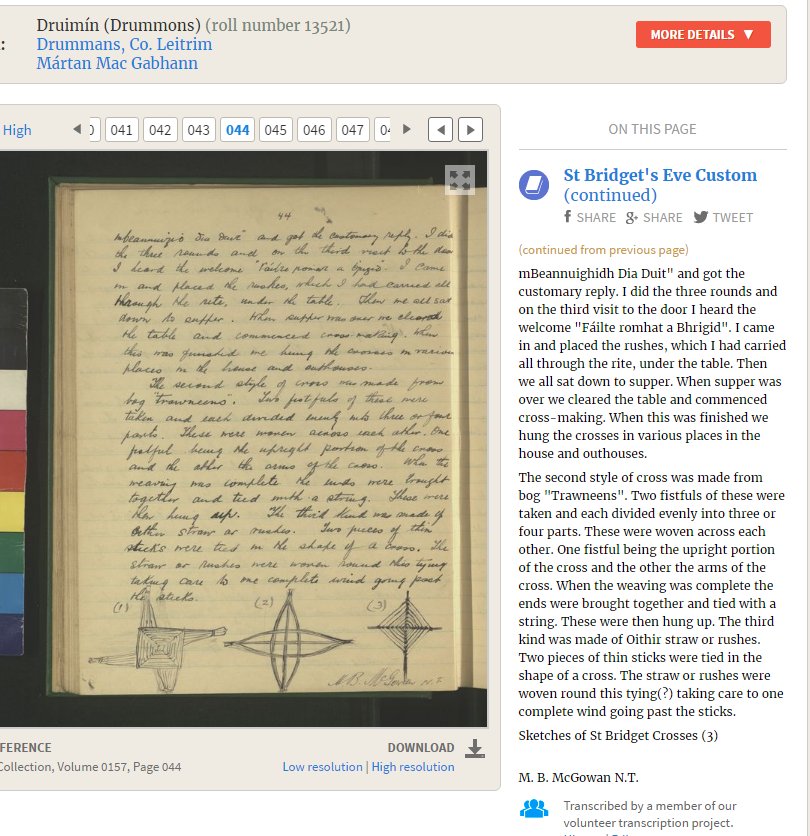 Druimín (Drummons) (roll number 13521)
: Drummans, Co. Leitrim
Mártan Mac Gabhann
MORE DETAILS ▼
High
041 042 043 044 045 046 047
ON THIS PAGE
St Bridget's Eve Custom
(continued)
SHARE SHARE TWEET
(continued from previous page)
mBeannuighidh Dia Duit" and got the
customary reply. I did the three rounds and
on the third visit to the door I heard the
welcome "Fáilte romhat a Bhrigid". I came
in and placed the rushes, which I had carried
all through the rite, under the table. Then
we all sat down to supper. When supper was
over we cleared the table and commenced
cross-making. When this was finished we
hung the crosses in various places in the
house and outhouses.
The second style of cross was made from
bog "Trawneens". Two fistfuls of these were
taken and each divided evenly into three or
four parts. These were woven across each
other. One fistful being the upright portion
of the cross and the other the arms of the
cross. When the weaving was complete the
ends were brought together and tied with a
string. These were then hung up. The third
kind was made of Oithir straw or rushes.
Two pieces of thin sticks were tied in the
shape of a cross. The straw or rushes were
woven round this tying(?) taking care to one
complete wind going past the sticks.
Sketches of St Bridget Crosses (3)
M. B. McGowan N.T.
Transcribed by a member of our
volunteer transcription project.
44
mbeannuigid Dia Duit" and got the customary reply. I did
the three rounds and on the third visit to the door
I heard the welcome "Fáilte romat a Brigid". I came
in and placed the rushes, which I had carried all
through the rite, under the table. Then we all sat
down to supper. When supper was over we cleared
the table and commenced cross-making. When
this was finished we hung the crosses in various
places in the house and outhouses.
The second style of cross was made from
bog "trawneens". Two fistfuls of these were
taken and each divided evenly into three or four
parts. These were woven across each other. One
fistful being the upright portion of the cross
and the other the arms of the cross. When the
weaving was complete the ends were brought
together and tied with a string. These were
then hung up. The third kind was made of
either straw or rushes. Two pieces of thin
sticks were tied in the shape of a cross. The
straw or rushes were woven round this tying
taking care to one complete wind going past
the sticks.
(1) (2) (3)
M. B. McGowan N.T.
FERENCE
Collection, Volume 0157, Page 044
DOWNLOAD
Low resolution | High resolution